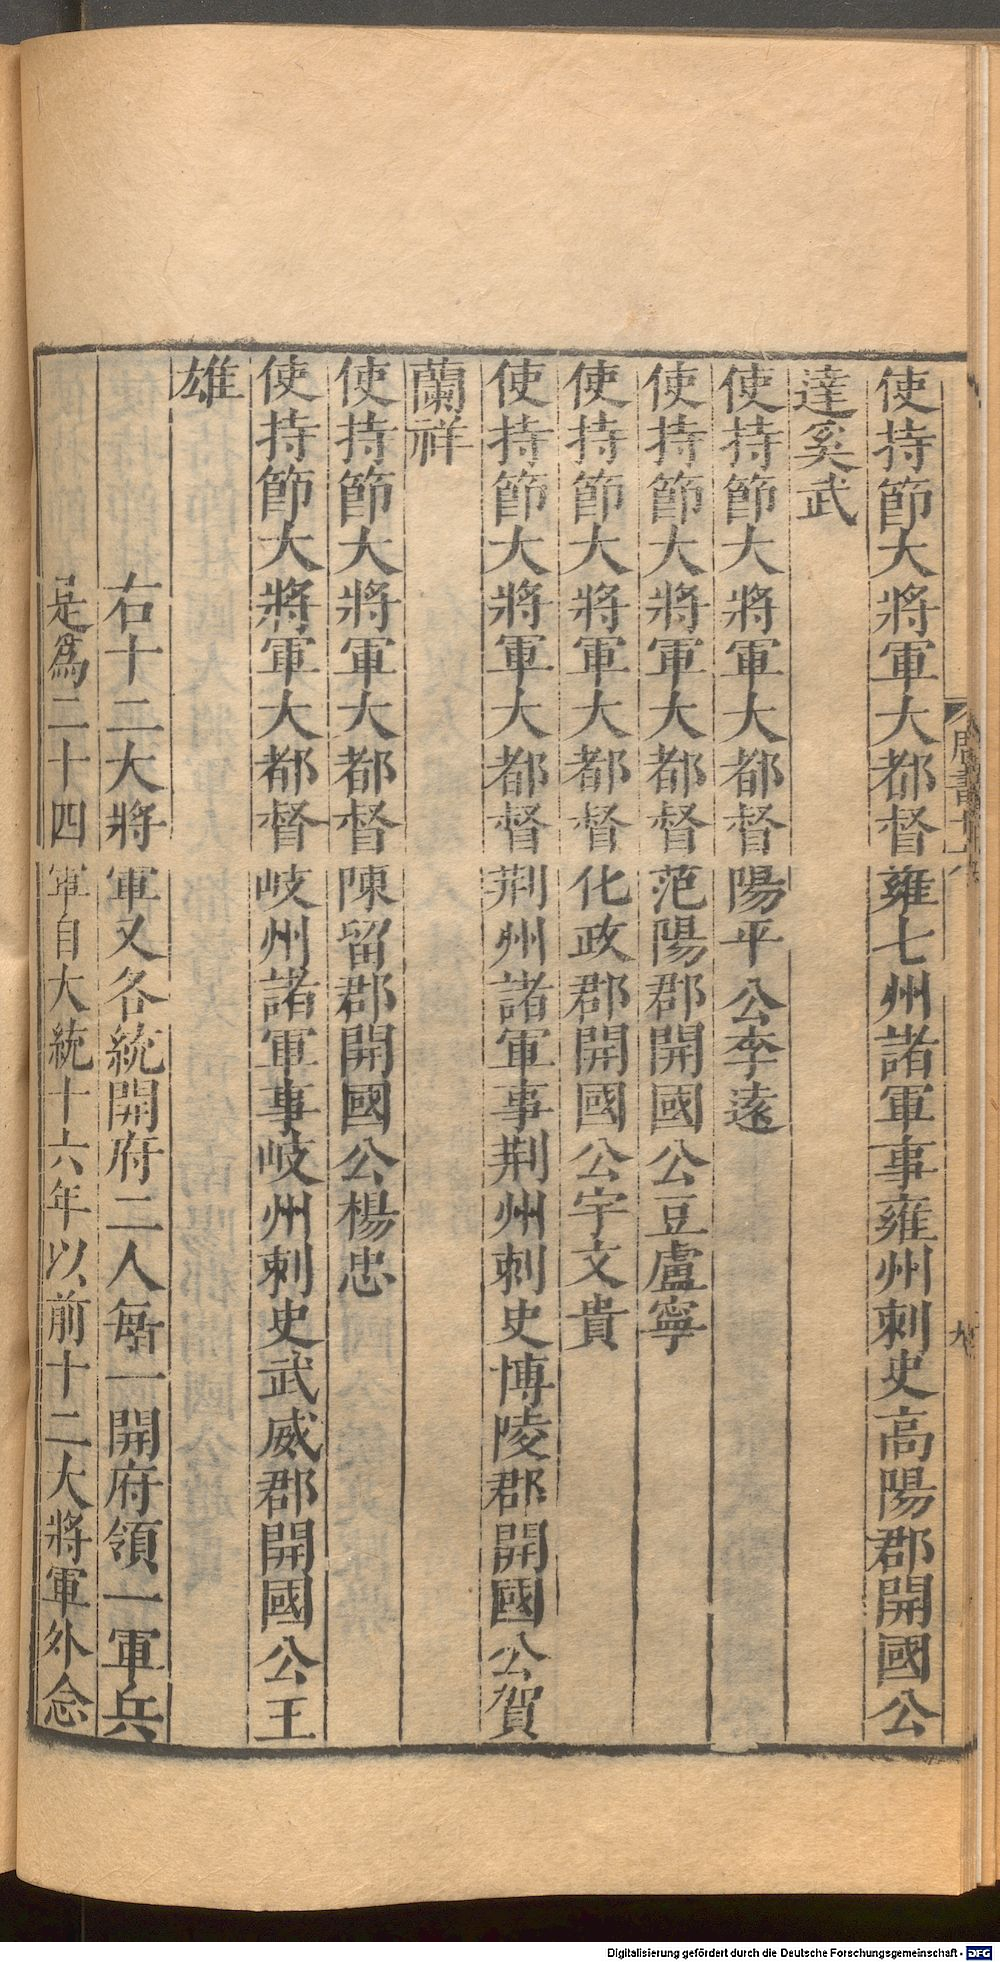 使持節大將軍大都督雍七州諸軍事雍州刺史高陽郡開國公
達奚武
使持節大將軍大都督陽平公李遠
使持節大將軍大都督范陽郡開國公豆盧寧
使持節大將軍大都督化政郡開國公宇文貴
使持節大將軍大都督荆州諸軍事荆州刺史博陵郡開國公賀
蘭祥
使持節大將軍大都督陳留郡開國公楊忠
使持節大將軍大都督岐州諸軍事岐州刺史武威郡開國公王
雄
右十二大將軍又各統開府二人每一開府領一軍兵
是爲二十四軍自大統十六年以前十二大將軍外念
Digitalisierung gefördert durch die Deutsche Forschungsgemeinschaft - DFG